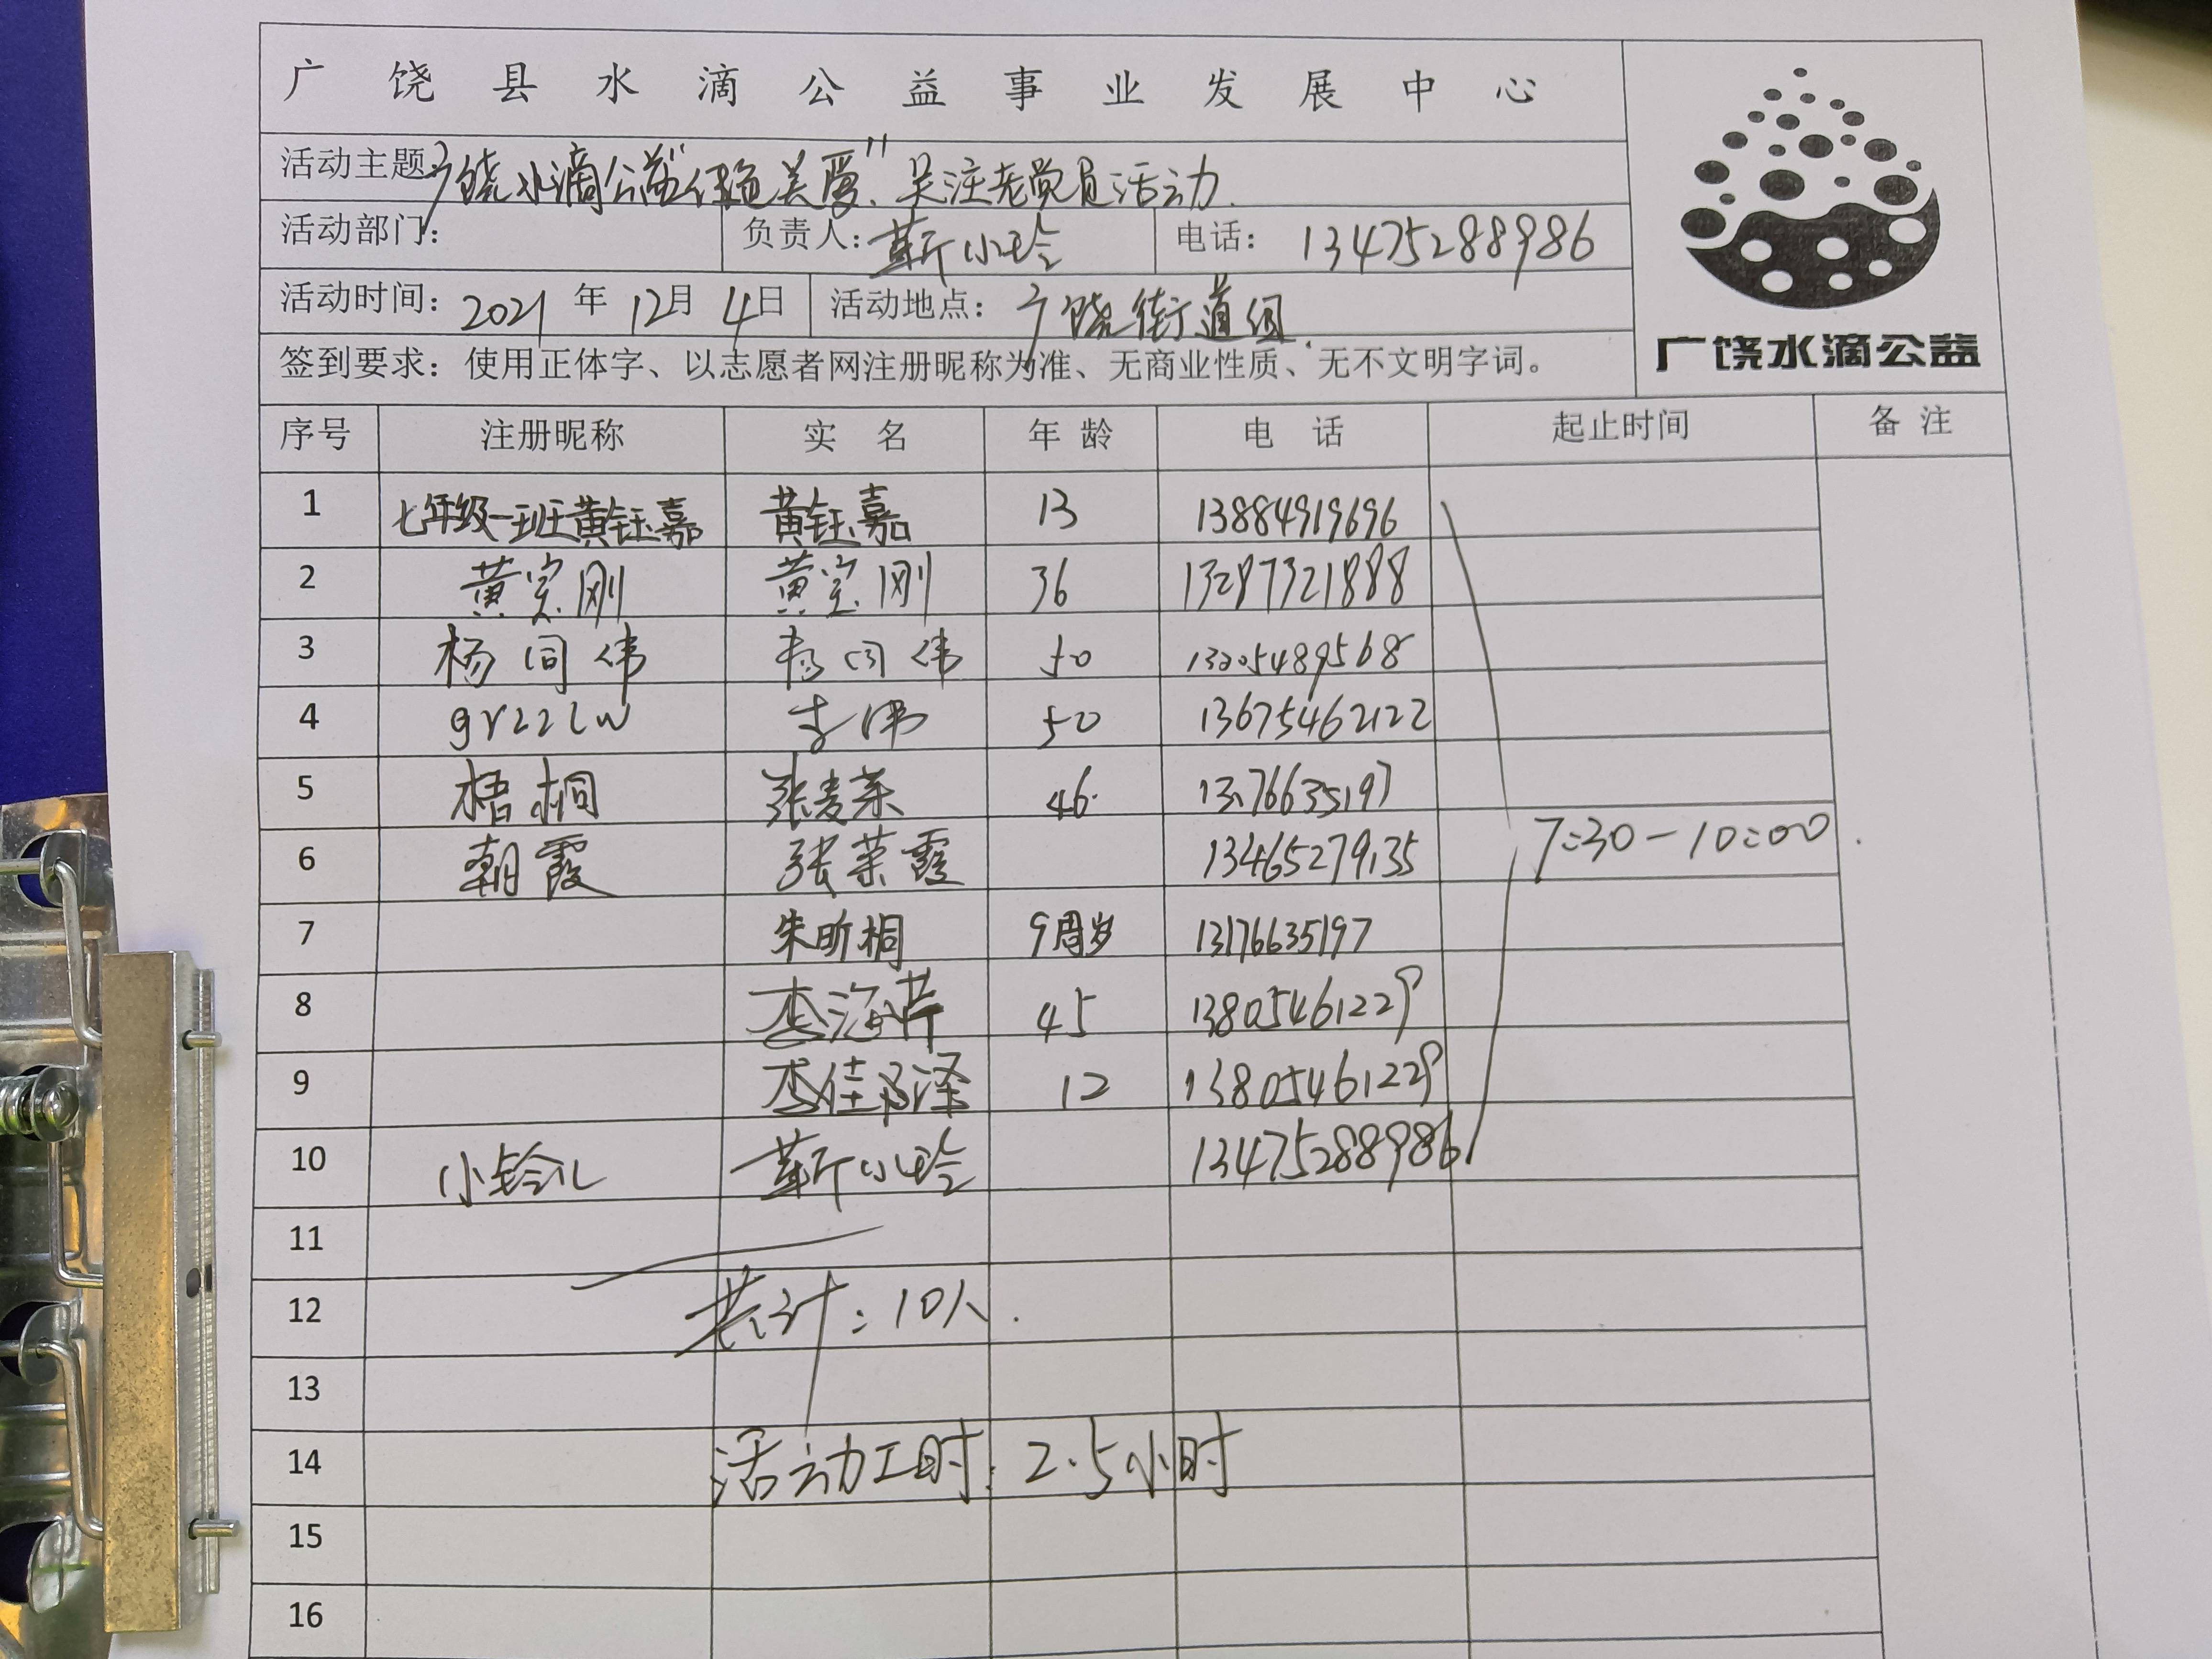 广饶县水滴公益事业发展中心
活动主题广饶水滴公益"红色关爱".关注老党员活动.
活动部门: 负责人:靳小玲 电话: 13475288986
活动时间: 2021 年 12月 4日 活动地点: 广饶街道组.
广饶水滴公益
签到要求:使用正体字、以志愿者网注册昵称为准、无商业性质、无不文明字词。
序号 注册昵称 实 名 年 龄 电 话 起止时间 备 注
1 七年级一班黄钰嘉 黄钰嘉 13 13884919696
2 黄宝刚 黄宝刚 36 13287321888
3 杨同伟 杨同伟 50 13205489568
4 grzzlw 李伟 50 13675462122
5 梧桐 张麦荣 46. 13176635197
6 朝霞 张荣霞 13465279135 7:30-10:00.
7 朱昕桐 9周岁 13176635197
8 李海芹 45 13805461229
9 李佳泽 12 13805461229
10 小铃儿 靳小玲 13475288986
11
12 共计:10人.
13
14 活动工时:2.5小时
15
16